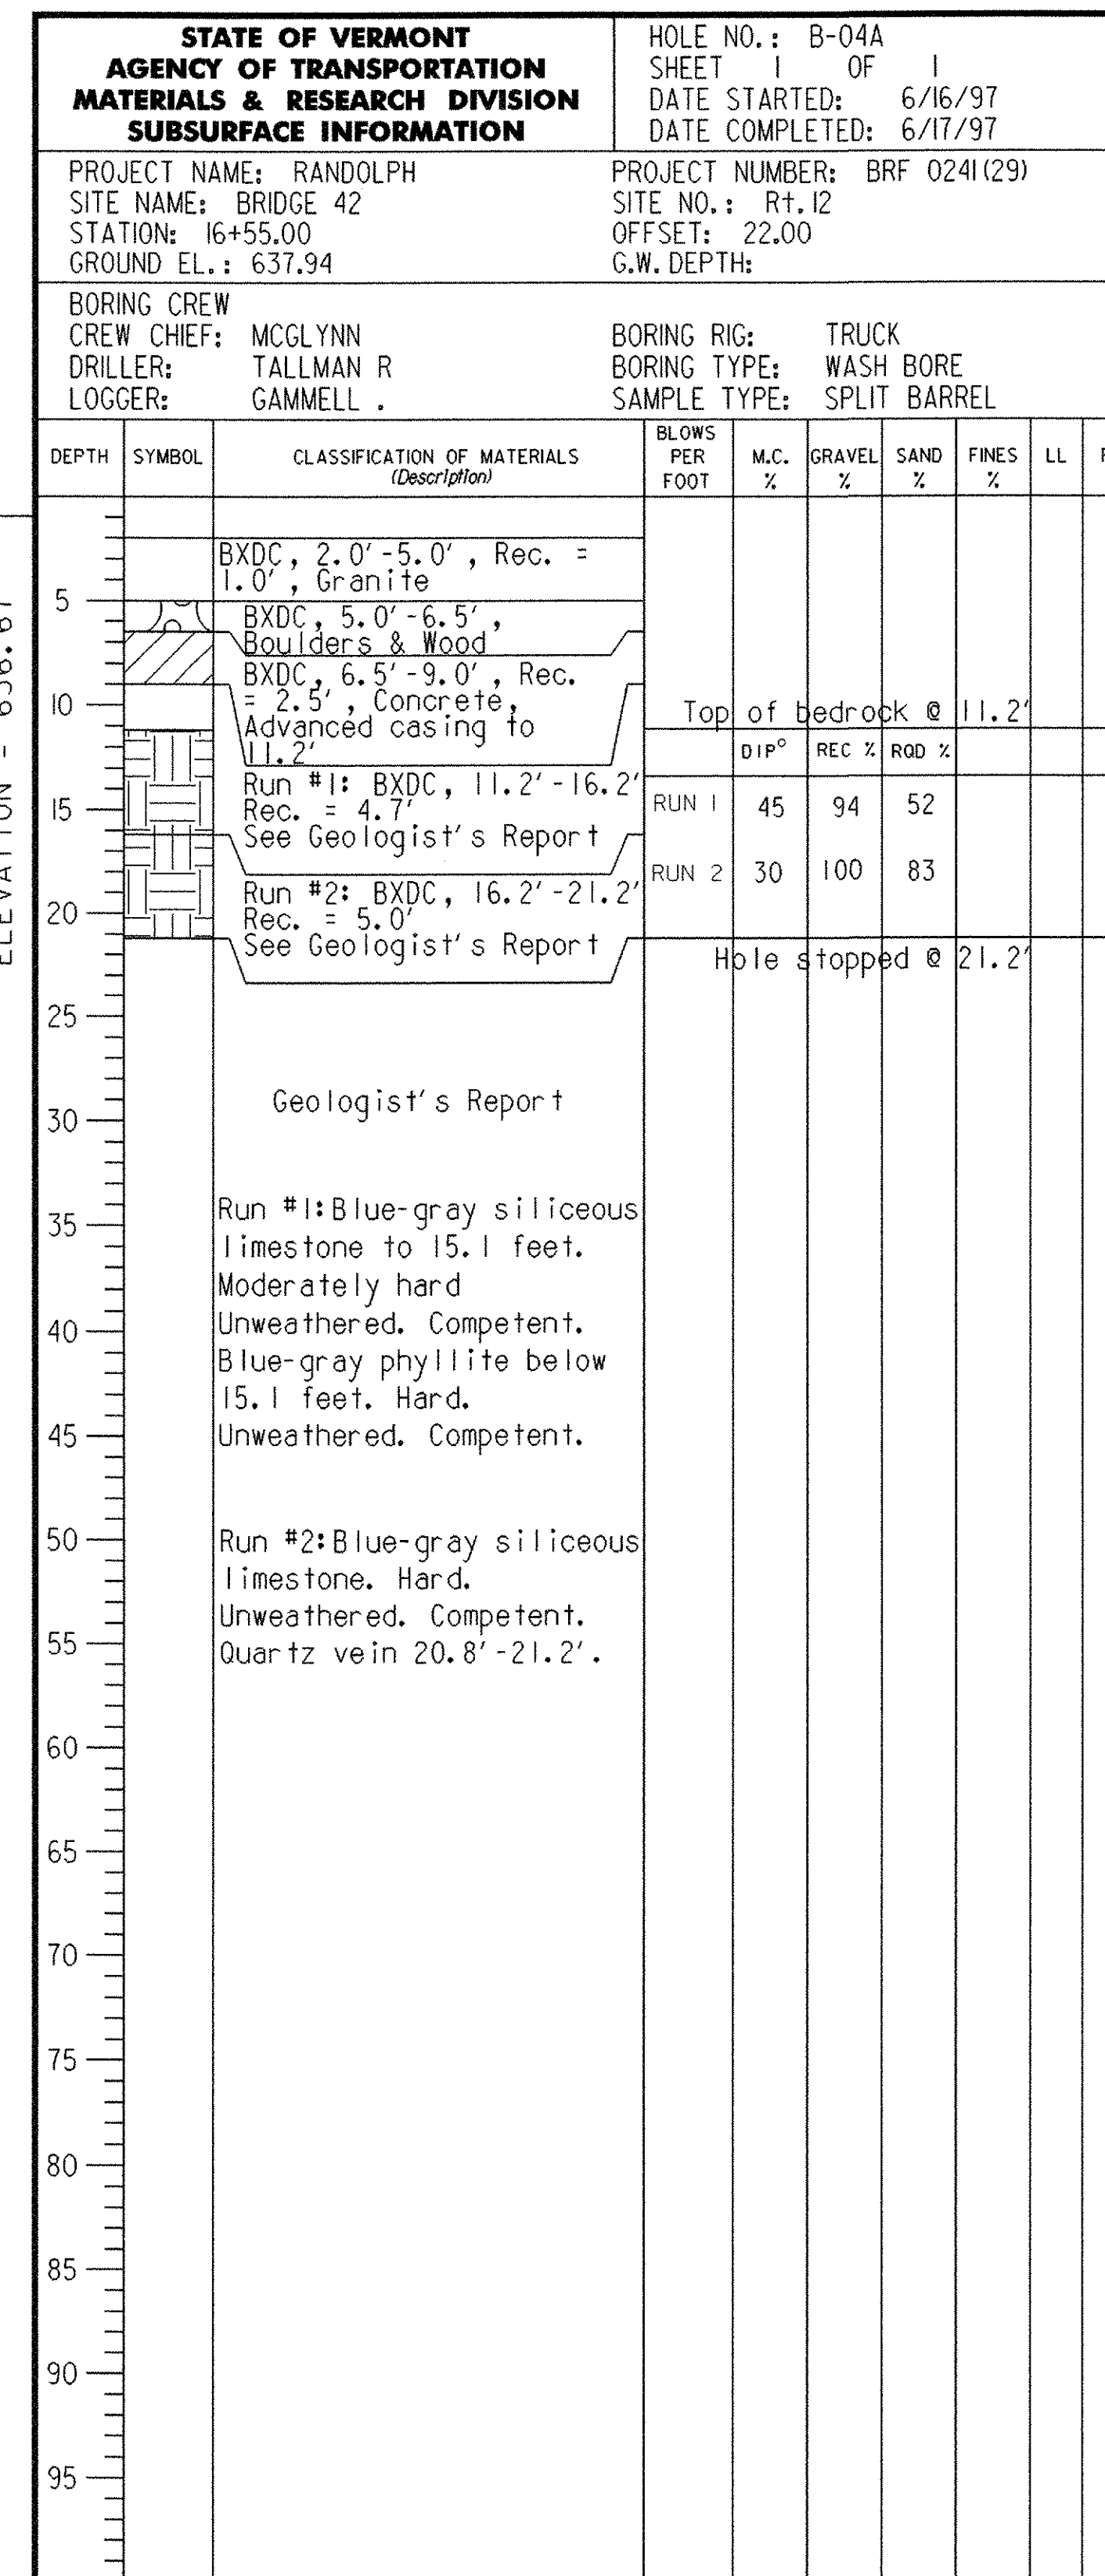 STATE OF VERMONT
AGENCY OF TRANSPORTATION
MATERIALS & RESEARCH DIVISION
SUBSURFACE INFORMATION
HOLE NO.: B-04A
SHEET 1 OF 1
DATE STARTED: 6/16/97
DATE COMPLETED: 6/17/97
PROJECT NAME: RANDOLPH
SITE NAME: BRIDGE 42
STATION: 16+55.00
GROUND EL.: 637.94
PROJECT NUMBER: BRF 0241(29)
SITE NO.: Rt.12
OFFSET: 22.00
G.W. DEPTH:
BORING CREW
CREW CHIEF: MCGLYNN
DRILLER: TALLMAN R
LOGGER: GAMMELL .
BORING RIG: TRUCK
BORING TYPE: WASH BORE
SAMPLE TYPE: SPLIT BARREL
DEPTH
SYMBOL
CLASSIFICATION OF MATERIALS
(Description)
BLOWS
PER
FOOT
M.C.
%
GRAVEL
%
SAND
%
FINES
%
LL
BXDC, 2.0'-5.0', Rec. =
1.0', Granite
BXDC, 5.0'-6.5',
Boulders & Wood
BXDC, 6.5'-9.0', Rec.
= 2.5', Concrete,
Advanced casing to
11.2'
Run #1: BXDC, 11.2'-16.2'
Rec. = 4.7'
See Geologist's Report
Run #2: BXDC, 16.2'-21.2'
Rec. = 5.0'
See Geologist's Report
Top of bedrock @ 11.2'
DIP° REC % RQD %
RUN 1 45 94 52
RUN 2 30 100 83
Hole stopped @ 21.2'
Geologist's Report
Run #1:Blue-gray siliceous
limestone to 15.1 feet.
Moderately hard
Unweathered. Competent.
Blue-gray phyllite below
15.1 feet. Hard.
Unweathered. Competent.
Run #2:Blue-gray siliceous
limestone. Hard.
Unweathered. Competent.
Quartz vein 20.8'-21.2'.
5
10
15
20
25
30
35
40
45
50
55
60
65
70
75
80
85
90
95